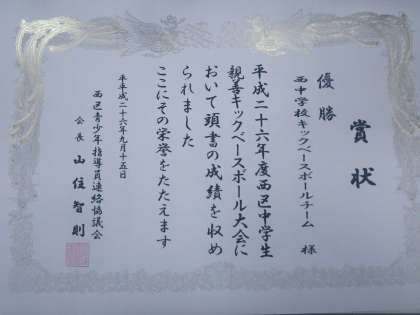 賞状
優勝
西中学校キックベースボールチーム 様
平成二十六年度西区中学生
親善キックベースボール大会に
おいて頭書の成績を収め
られました
ここにその栄誉をたたえます
平成二十六年九月十五日
西区青少年指導員連絡協議会
会長 山住智則